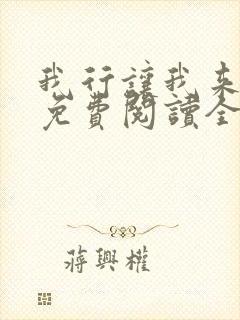 我行讓我來
免費閱讀全
蔣興權